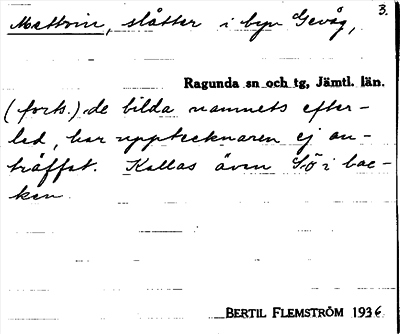 3.
Mettvin, slåtter i byn Gevåg,
Ragunda sn och tg, Jämtl. län.
(forts.) de bilda namnets efter-
led, har upptecknaren ej an-
träffat. Kallas även Sö i bac-
ken.
BERTIL FLEMSTRÖM 1936